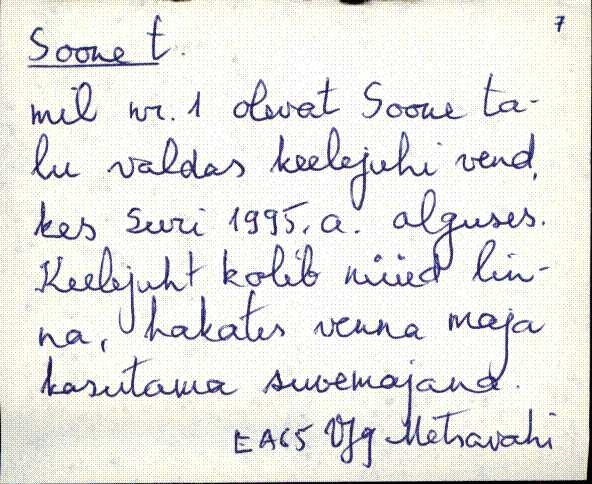 7
Soone t.
mil nr. 1 olevat Soone ta-
lu valdas keelejuhi vend,
kes suri 1995. a. alguses.
Keelejuht kolib nüüd lin-
na, hakates venna maja
kasutama suvemajana.
EA65 Vjg Metsavahi